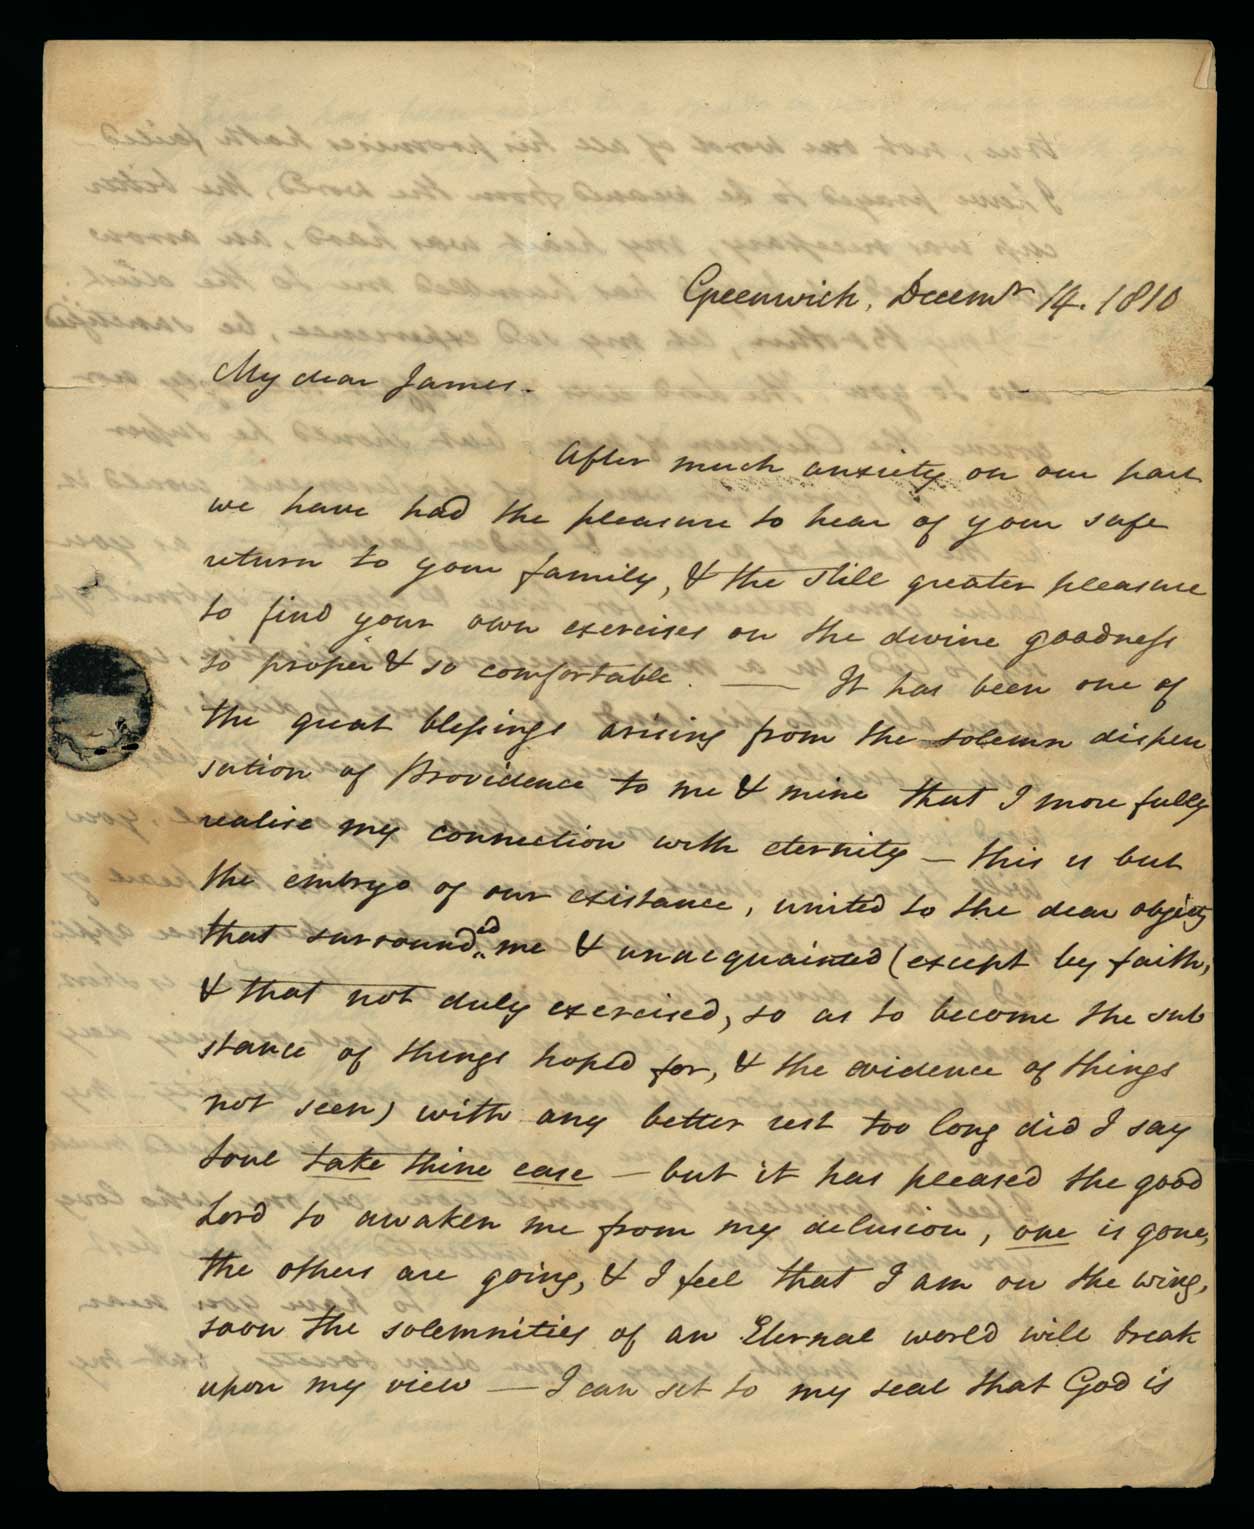 Greenwich, Decemr 14. 1810
My dear James.
After much anxiety on our part
we have had the pleasure to hear of your safe
return to your family, & the still greater pleasure
to find your own exercises on the divine goodness
so proper & so comfortable. — It has been one of
the great blessings arising from the solemn dispen
sation of Providence to me & mine that I more fully
realise my connection with eternity — this is but
the embryo of our existance, united to the dear objects
that surrounded me & unacquainted (except by faith,
& that not duly exercised, so as to become the sub
stance of things hoped for, & the evidence of things
not seen) with any better rest too long did I say
Soul take thine ease — but it has pleased the good
Lord to awaken me from my delusion, one is gone,
the others are going, & I feel that I am on the wing,
soon the solemnities of an Eternal world will break
upon my view — I can set to my seal that God is